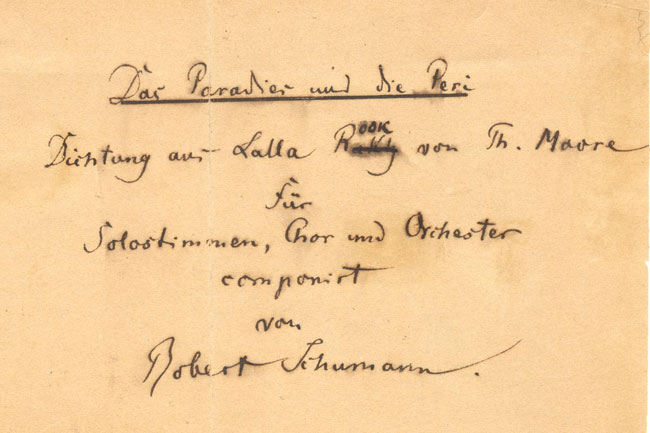 Das Paradies und die Peri
Dichtung aus Lalla Rook von Th. Moore
für
Solostimmen, Chor und Orchester
componirt
von
Robert Schumann.